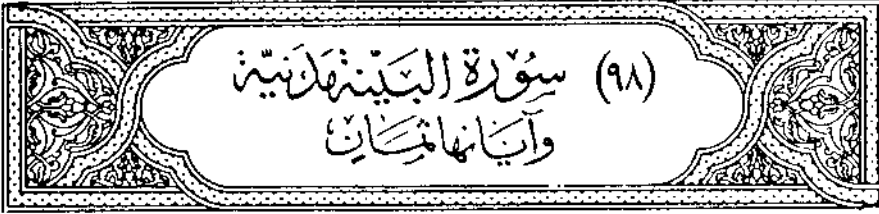 (٩٨) سورة البينة مدنية
وآياتها ثمان